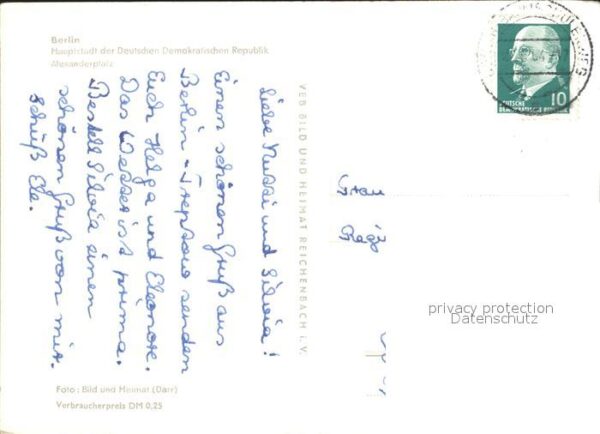 Berlin
Hauptstadt der Deutschen Demokratischen Republik
Alexanderplatz
Liebe Mutti und Silvia!
Einen schönen Gruß aus
Berlin-Treptow senden
Euch Helga und Eleonore.
Das Wetter ist prima.
Bestell Silvia einen
schönen Gruß von mir.
Schüß Ele.
Foto: Bild und Heimat (Darr)
Verbraucherpreis DM 0,25
VEB BILD UND HEIMAT REICHENBACH i. V.
10
DEUTSCHE
DEMOKRATISCHE REPUBLIK
Frau
privacy protection
Datenschutz